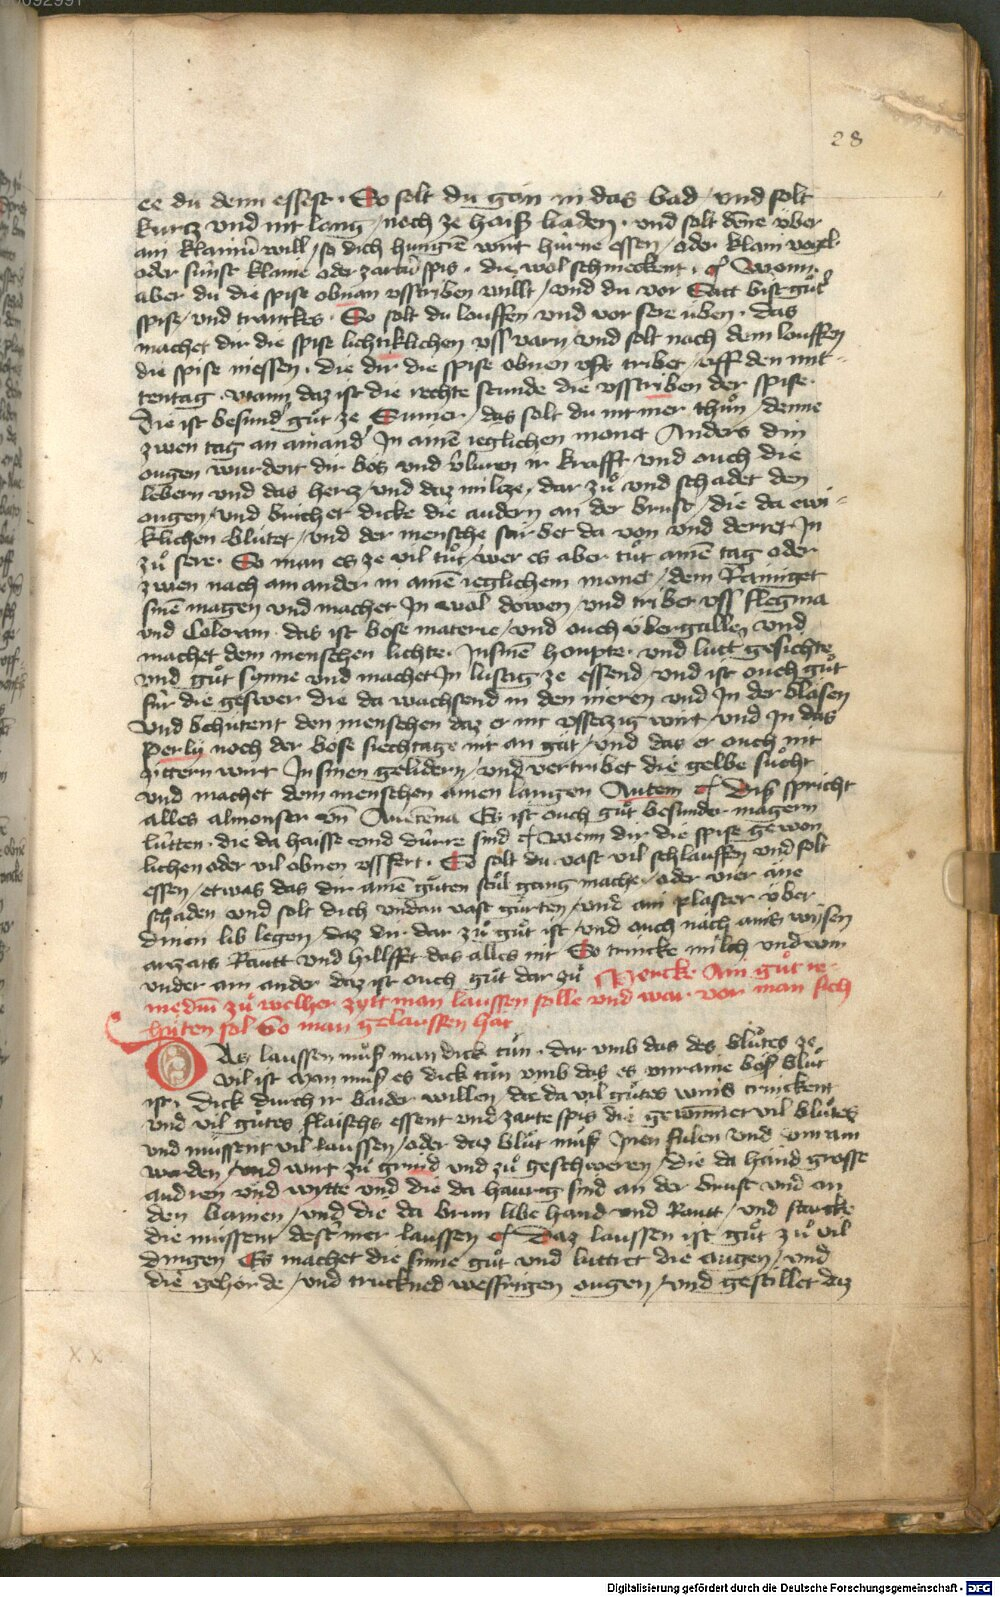 28
ee du denn essest · So solt du gan in das bad / und solt
kurtz und nit lang / noch ze haiß baden · und solt dēne über
ain klainū will / so dich hungrē wirt hūrne essen / oder klain vogel ·
oder sunst klaine oder zartū spis · die wol schmeckent · Wenn
aber du die spise obnan ußtriben willt / und du vor Satt bist gůt'
spise / und tranckes · So solt du louffen und vor sere üben · das
machet dir die spise lichtiklichen uss varn / und solt nach dem louffen
die spise niessen · die dir die spise obnen usß tribet / uff den mit-
tentag · wann daz ist die rechte stunde die ußtriben der spise ·
Die ist besund' gůt ze Sumer · das solt du nit mer thůn / denne
zwen tag an ainand' Jn ainē ieglichen monet Anders din
ougen wurdent dir bös und v̉luren ir krafft und ouch die
lebern und das hertz / und daz miltze / dar zů und schadet den
ougen / und brichet dicke die audern an der brust / die da ewi-
klichen blůtet / und der mensche stirbet da von und derret Jn
zů sere · So man es ze vil tůt / wer es aber tůt ainē tag oder
zwen nach ain ander in ainē ieglichem monet / dem Rainiget
sinē magen und machet Jn wol dowen / und tribet uss flegma
und Coloram · das ist bose materie / und ouch übergallē und
machet dem menschen lichte · Jn sinē houpte · und lutt gesichte
und gůt synne und machet Jn lustig ze essend / und ist ouch gůt
für die geswer die da wachsend in den nieren und Jn der blasen
und behütent den menschen daz er nit ussetzig wirt / und Jn das
perly noch der böse siechtage nit an gat / und das er ouch nit
zittern wirt Jn sinen gelidern / und vertribet die gelbe sůcht
und machet dem menschen ainen langen Autem Diß spricht
alles almonser vn̄ Auicenna Es ist ouch gůt besunder magern
lütten · die da haisse und dürre sind Wenn dir die spise gewon
lichen oder vil obnen ußfert · So solt du vast vil schlauffen und solt
essen / etwas das dir ainē gůten stůl gang mache / oder vier āne
schaden und solt dich undan vast gürten / und ain plaster über
dinen lib legen / daz dir dar zů gůt ist / und ouch nach ains wysen
artzats Raut und hillffet das alles nit So trincke milch und win
under ain ander daz ist ouch gůt dar zů Merck Ain gůt re-
mediū zů welher zytt man laussen solle und war vor man sich
hüten sol So man gelaussen hat
Das laussen můß man dick tůn · dar umb das des blůtes ze
vil ist Man můß es dick tůn umb das es unraine böß blůt
ist · Dick durch ir baider willen / die da vil gůtes wins trinckent
und vil gůtes flaischs essent und zarte spis die gewinnet vil blůtes
und müssent vil laussen / oder daz blůt můß Jnen fulen und unrain
werden / und wirt zů grind und zů geschweren / die da hand grosse
audren und wytte und die da haurig sind an der brust und an
den bainen / und die da brun libe hand und Raut / und starcke
die müssent dest mer laussen Daz laussen ist gůt zů vil
dingen Es machet die sinne gůt und luttret die ougen / und
die gehörde / und truckned wessrigen ougen / und gestillet daz
XX
Digitalisierung gefördert durch die Deutsche Forschungsgemeinschaft - DFG